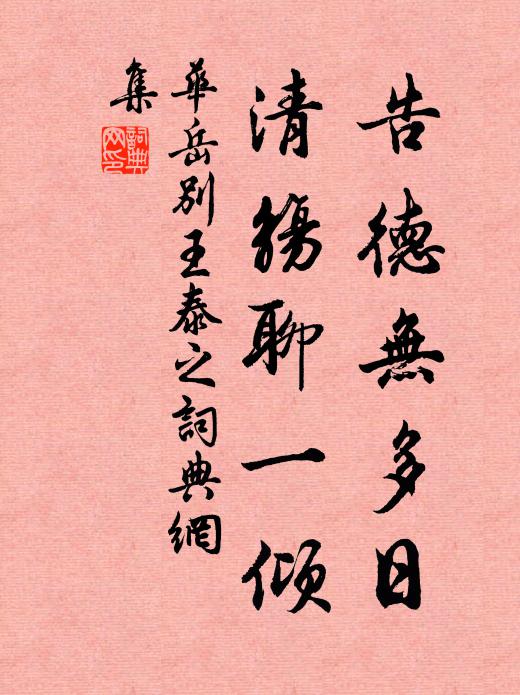 告德無多日
清觴聊一傾
華岳別王泰之詞典網
集
詞典網印